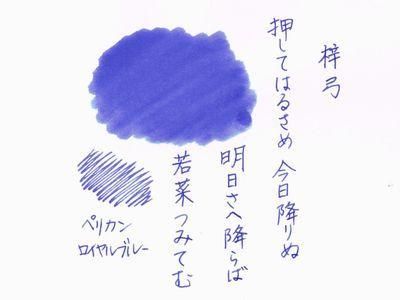 梓弓
押してはるさめ 今日降りぬ
明日さへ降らば
若菜つみてむ
ペリカン
ロイヤルブルー